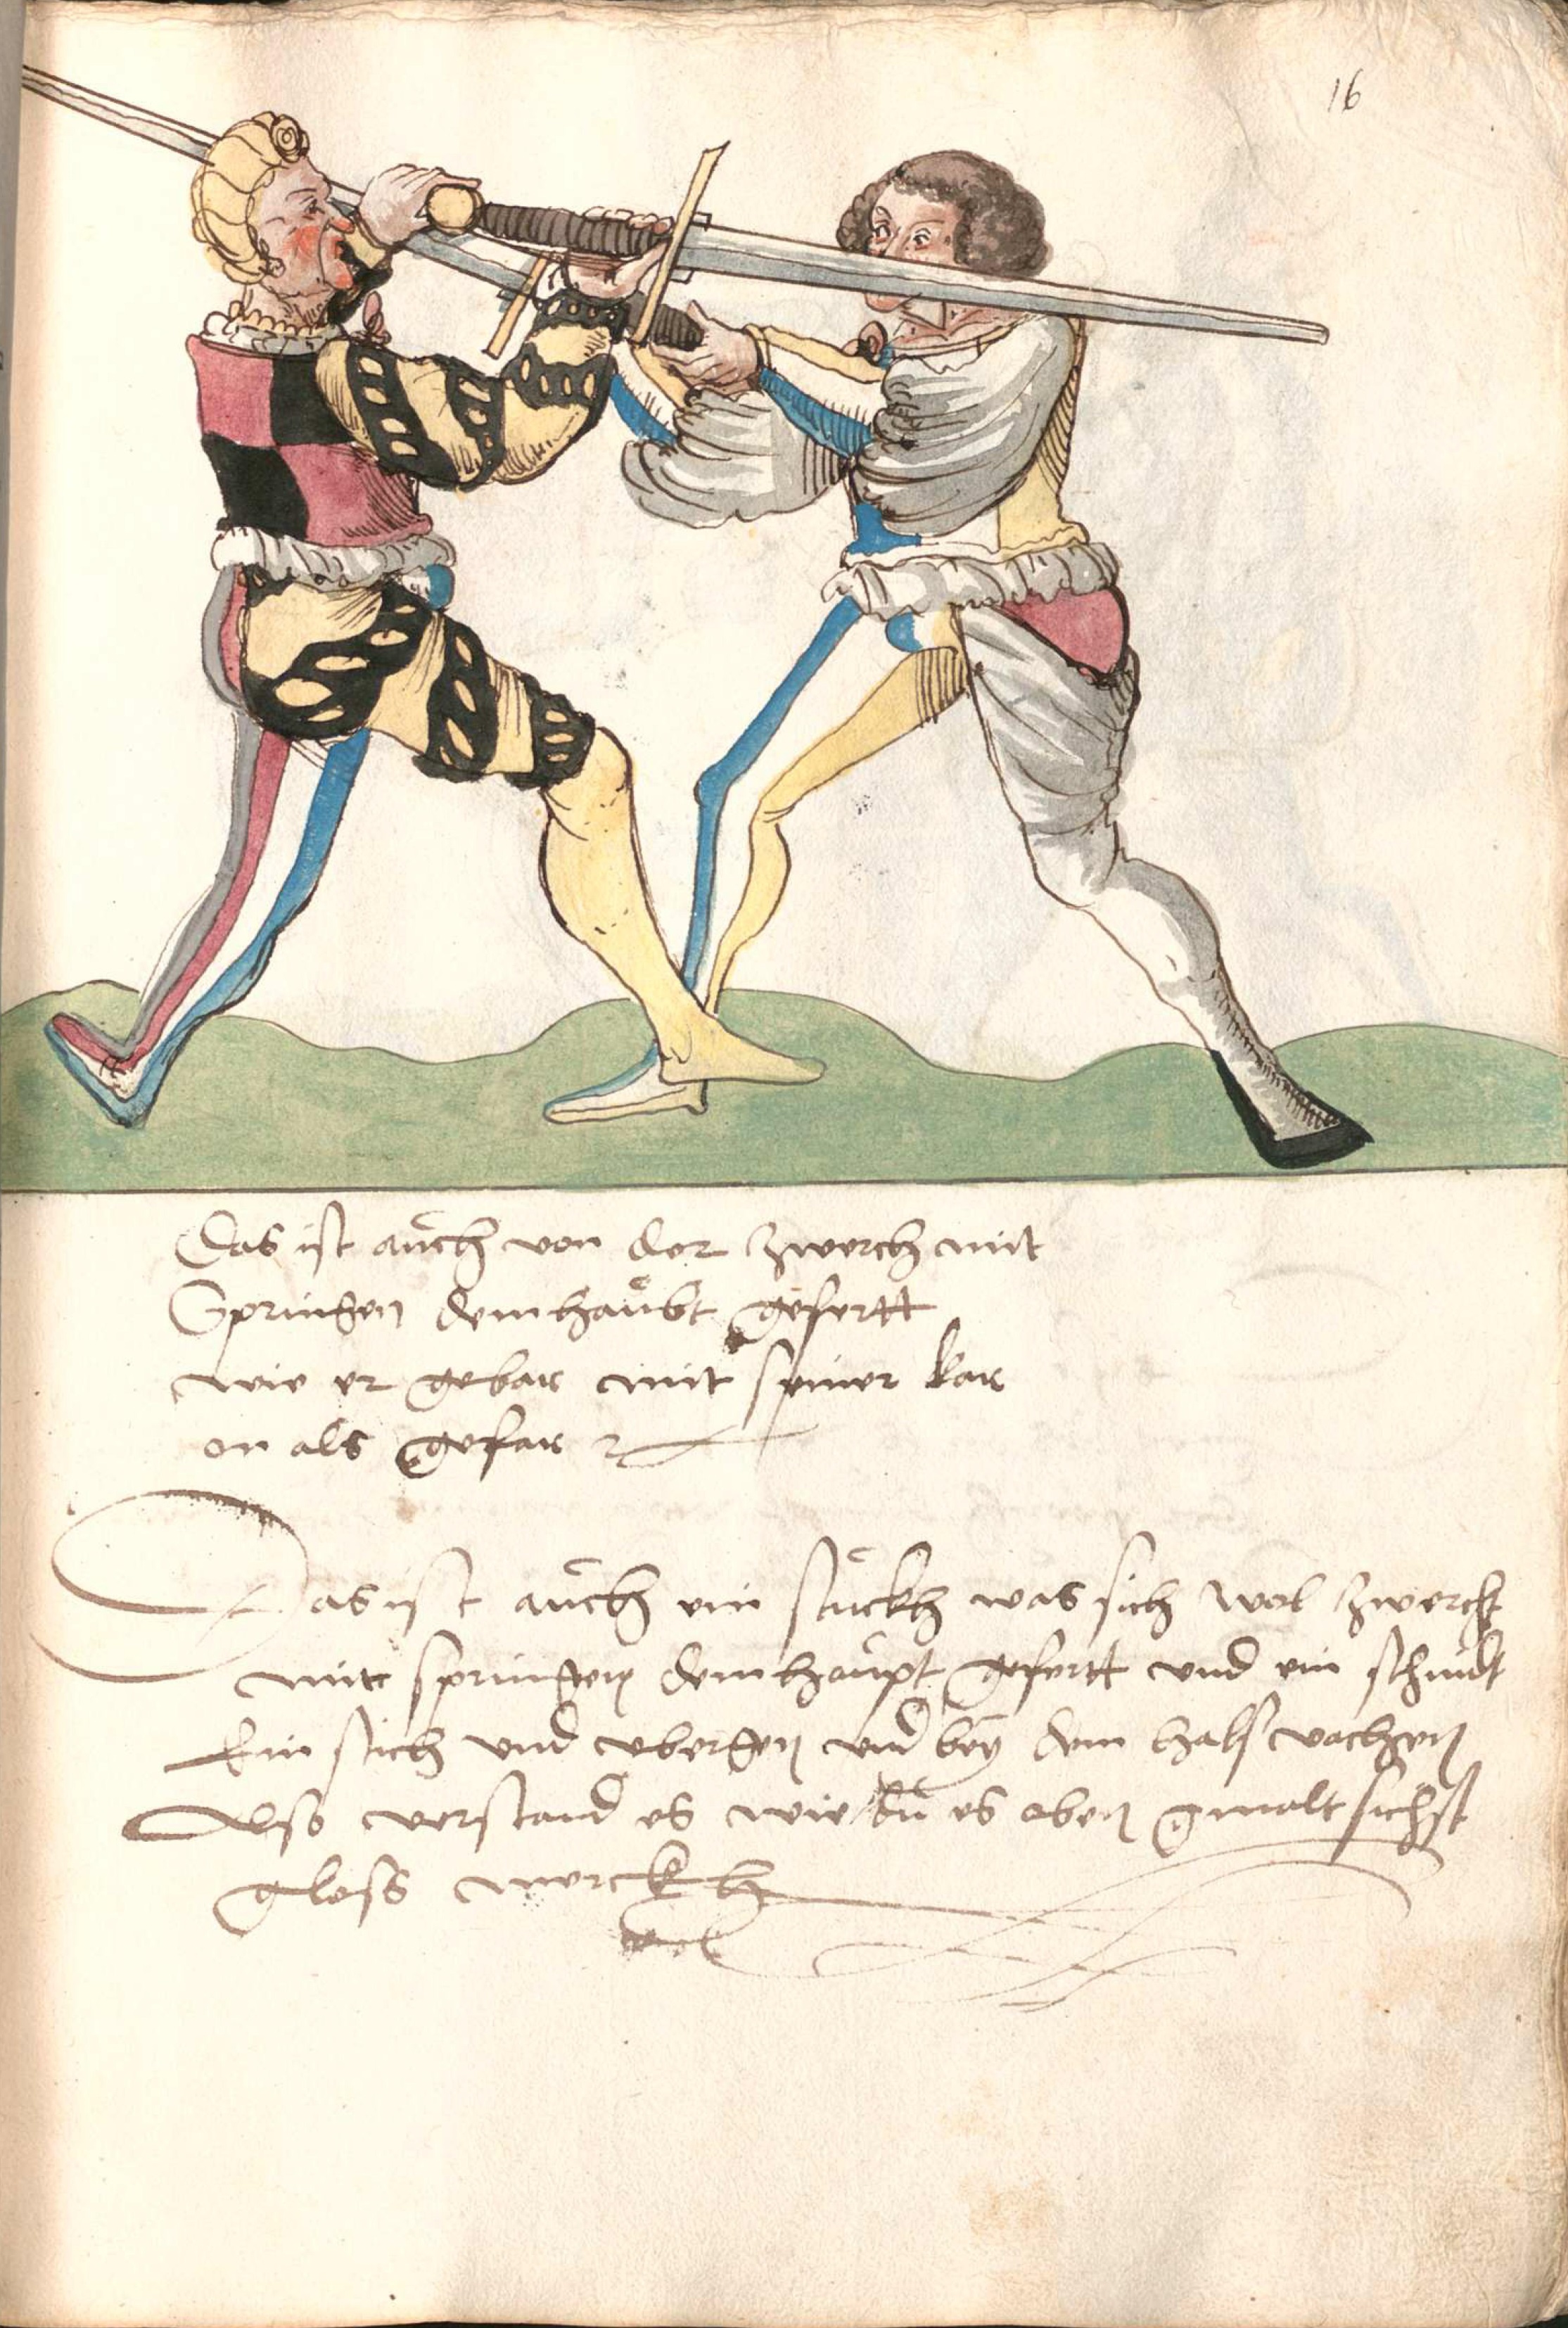 16
Das ist aůch von der zwerch mit
Springen dem haůbt gefertt
wie er gebar mit seiner kar
on als gefar
Das ist aůch ein stůckh was sich wol zwercht
mit springen dem haůpt gefertt vnd ein schnidt
Ein stich vnd vbergen vnd bey dem hals vachen
Also verstand es wie dů es oben gmalt sichst
gloss merckh